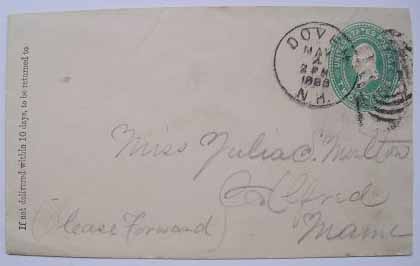 If not delivered within 10 days, to be returned to
DOVE
MAY
2 PM
N.H.
UNITED STATES
Miss Julia C. Moulton
Alfred
Maine
(Please Forward)